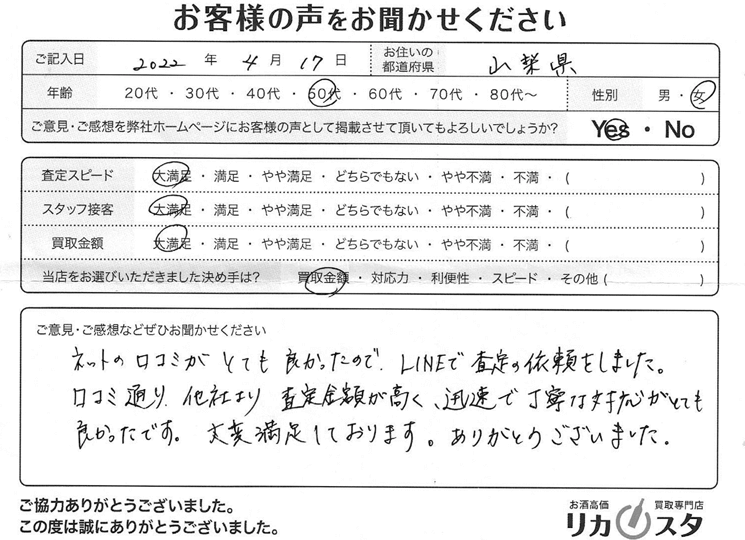 お客様の声をお聞かせください
ご記入日 2022 年 4 月 17 日 お住いの都道府県 山梨県
年齢 20代 ・ 30代 ・ 40代 ・ 50代 ・ 60代 ・ 70代 ・ 80代～ 性別 男 ・ 女
ご意見・ご感想を弊社ホームページにお客様の声として掲載させて頂いてもよろしいでしょうか? Yes ・ No
査定スピード 大満足 ・ 満足 ・ やや満足 ・ どちらでもない ・ やや不満 ・ 不満 ・ ( )
スタッフ接客 大満足 ・ 満足 ・ やや満足 ・ どちらでもない ・ やや不満 ・ 不満 ・ ( )
買取金額 大満足 ・ 満足 ・ やや満足 ・ どちらでもない ・ やや不満 ・ 不満 ・ ( )
当店をお選びいただきました決め手は? 買取金額 ・ 対応力 ・ 利便性 ・ スピード ・ その他 ( )
ご意見・ご感想などぜひお聞かせください
ネットの口コミがとても良かったので、LINEで査定の依頼をしました。
口コミ通り、他社より査定金額が高く、迅速で丁寧な対応がとても
良かったです。大変満足しております。ありがとうございました。
ご協力ありがとうございました。
この度は誠にありがとうございました。
お酒高価 買取専門店
リカスタ